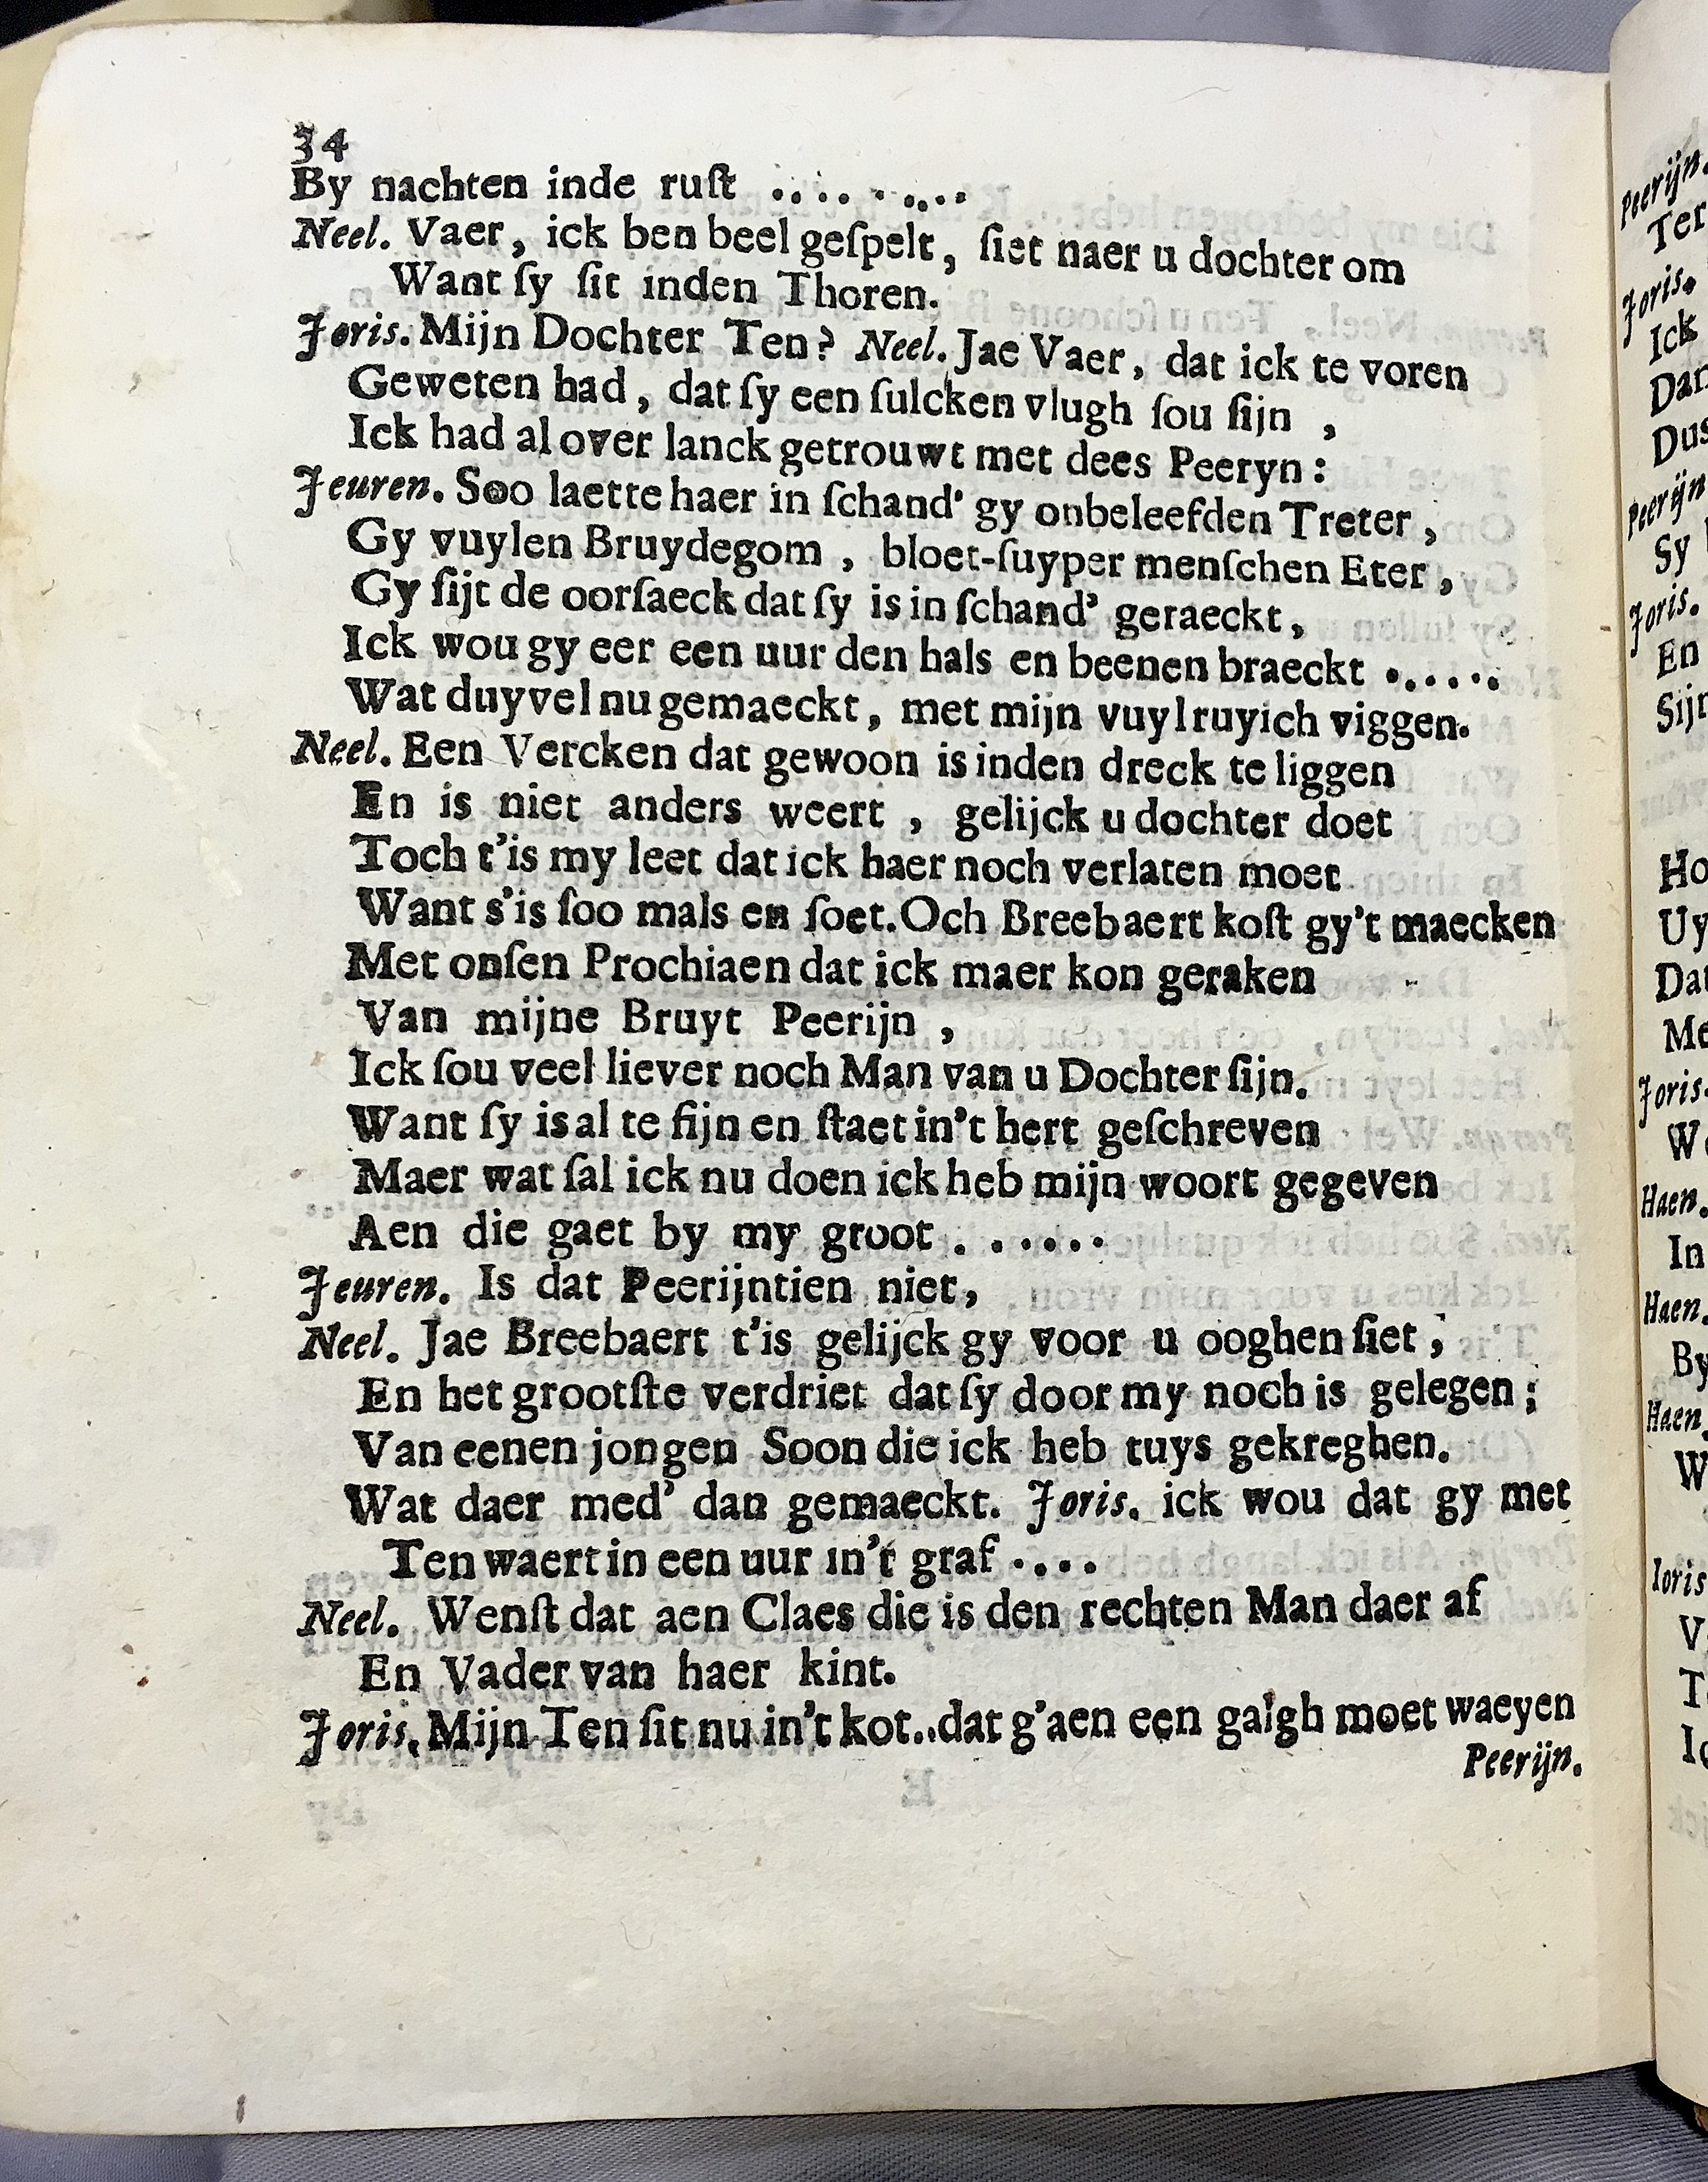 34
By nachten inde ruſt .... . ....
Neel. Vaer, ick ben beel geſpelt, ſiet naer u dochter om
Want ſy ſit inden Thoren.
Joris. Mijn Dochter Ten? Neel. Jae Vaer, dat ick te voren
Geweten had, dat ſy een ſulcken vlugh ſou ſijn,
Ick had al over lanck getrouwt met dees Peeryn:
Jeuren. Soo laette haer in ſchand' gy onbeleefden Treter,
Gy vuylen Bruydegom, bloet-ſuyper menſchen Eter,
Gy ſijt de oorſaeck dat ſy is in ſchand' geraeckt,
Ick wou gy eer een uur den hals en beenen braeckt ......
Wat duyvel nu gemaeckt, met mijn vuyl ruyich viggen.
Neel. Een Vercken dat gewoon is inden dreck te liggen
En is niet anders weert, gelijck u dochter doet
Toch t'is my leet dat ick haer noch verlaten moet
Want s'is ſoo mals en ſoet. Och Breebaert koſt gy't maecken
Met onſen Prochiaen dat ick maer kon geraken
Van mijne Bruyt Peerijn,
Ick ſou veel liever noch Man van u Dochter ſijn.
Want ſy is al te fijn en ſtaet in't hert geſchreven
Maer wat ſal ick nu doen ick heb mijn woort gegeven
Aen die gaet by my groot . .....
Jeuren. Is dat Peerijntien niet,
Neel. Jae Breebaert t'is gelijck gy voor u ooghen ſiet,
En het grootſte verdriet dat ſy door my noch is gelegen;
Van eenen jongen Soon die ick heb tuys gekreghen.
Wat daer med' dan gemaeckt. Joris. ick wou dat gy met
Ten waert in een uur in't graf ....
Neel. Wenſt dat aen Claes die is den rechten Man daer af
En Vader van haer kint.
Joris. Mijn Ten ſit nu in't kot..dat g'aen een galgh moet waeyen
Peerijn.
Peerijn.
Ter
Joris.
Ick
Dan
Dus
Peerijn
Sy
Joris.
En
Sijn
Ho
Uy
Dat
Me
Joris.
W
Haen.
In
Haen.
By
Haen
W
Ioris
V
T